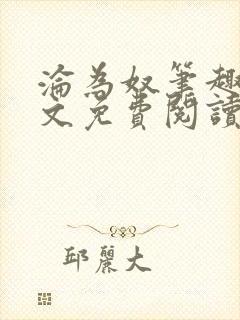 淪為奴筆趣
文免費閱讀
邱麗大